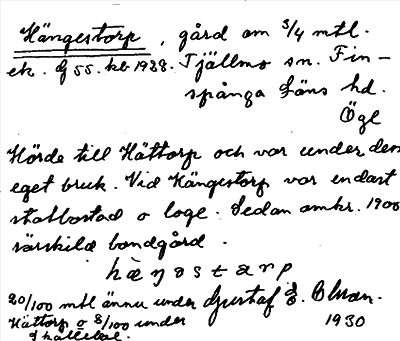 Hängestorp, gård om 3/4 mtl.
ek. bl 55. kb 1938. Tjällmo sn. Fin-
spånga Läns hd.
Ögl
Hörde till Hättorp och var under dess
eget bruk. Vid Hängestorp var endast
statbostad o loge. Sedan omkr. 1900
särskild bondgård.
hæŋəstarp
20/100 mtl ännu under Gustaf E. Olsson.
Hättorp o 8/100 under 1930